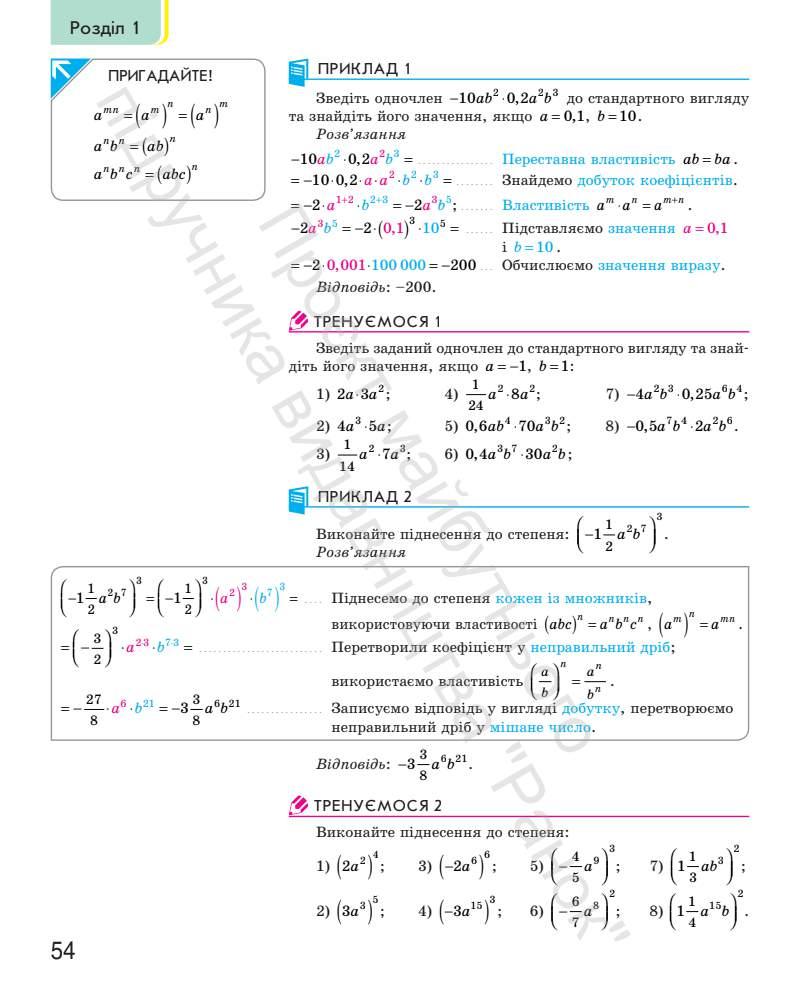 Розділ 1
ПРИГАДАЙТЕ!
aᵐⁿ = (aᵐ)ⁿ = (aⁿ)ᵐ
aⁿbⁿ = (ab)ⁿ
aⁿbⁿcⁿ = (abc)ⁿ
ПРИКЛАД 1
Зведіть одночлен −10ab² · 0,2a²b³ до стандартного вигляду
та знайдіть його значення, якщо a = 0,1, b = 10.
Розв’язання
−10ab² · 0,2a²b³ = ............... Переставна властивість ab = ba.
= −10 · 0,2 · a · a² · b² · b³ = ....... Знайдемо добуток коефіцієнтів.
= −2 · a¹⁺² · b²⁺³ = −2a³b⁵; ....... Властивість aᵐ · aⁿ = aᵐ⁺ⁿ.
−2a³b⁵ = −2 · (0,1)³ · 10⁵ = ...... Підставляємо значення a = 0,1
і b = 10.
= −2 · 0,001 · 100 000 = −200 ... Обчислюємо значення виразу.
Відповідь: −200.
ТРЕНУЄМОСЯ 1
Зведіть заданий одночлен до стандартного вигляду та знай-
діть його значення, якщо a = −1, b = 1:
1) 2a · 3a²; 4) 1/24 a² · 8a²; 7) −4a²b³ · 0,25a⁶b⁴;
2) 4a³ · 5a; 5) 0,6ab⁴ · 70a³b²; 8) −0,5a⁷b⁴ · 2a²b⁶.
3) 1/14 a² · 7a³; 6) 0,4a³b⁷ · 30a²b;
ПРИКЛАД 2
Виконайте піднесення до степеня: (−1 1/2 a²b⁷)³.
Розв’язання
(−1 1/2 a²b⁷)³ = (−1 1/2)³ · (a²)³ · (b⁷)³ = .... Піднесемо до степеня кожен із множників,
використовуючи властивості (abc)ⁿ = aⁿbⁿcⁿ, (aᵐ)ⁿ = aᵐⁿ.
= (−3/2)³ · a²·³ · b⁷·³ = ......................... Перетворили коефіцієнт у неправильний дріб;
використаємо властивість (a/b)ⁿ = aⁿ/bⁿ.
= −27/8 · a⁶ · b²¹ = −3 3/8 a⁶b²¹ ............... Записуємо відповідь у вигляді добутку, перетворюємо
неправильний дріб у мішане число.
Відповідь: −3 3/8 a⁶b²¹.
ТРЕНУЄМОСЯ 2
Виконайте піднесення до степеня:
1) (2a²)⁴; 3) (−2a⁶)⁶; 5) (−4/5 a⁹)³; 7) (1 1/3 ab³)²;
2) (3a³)⁵; 4) (−3a¹⁵)³; 6) (−6/7 a⁸)²; 8) (1 1/4 a¹⁵b)².
54
Проєкт майбутнього
підручника видавництва "Ранок"